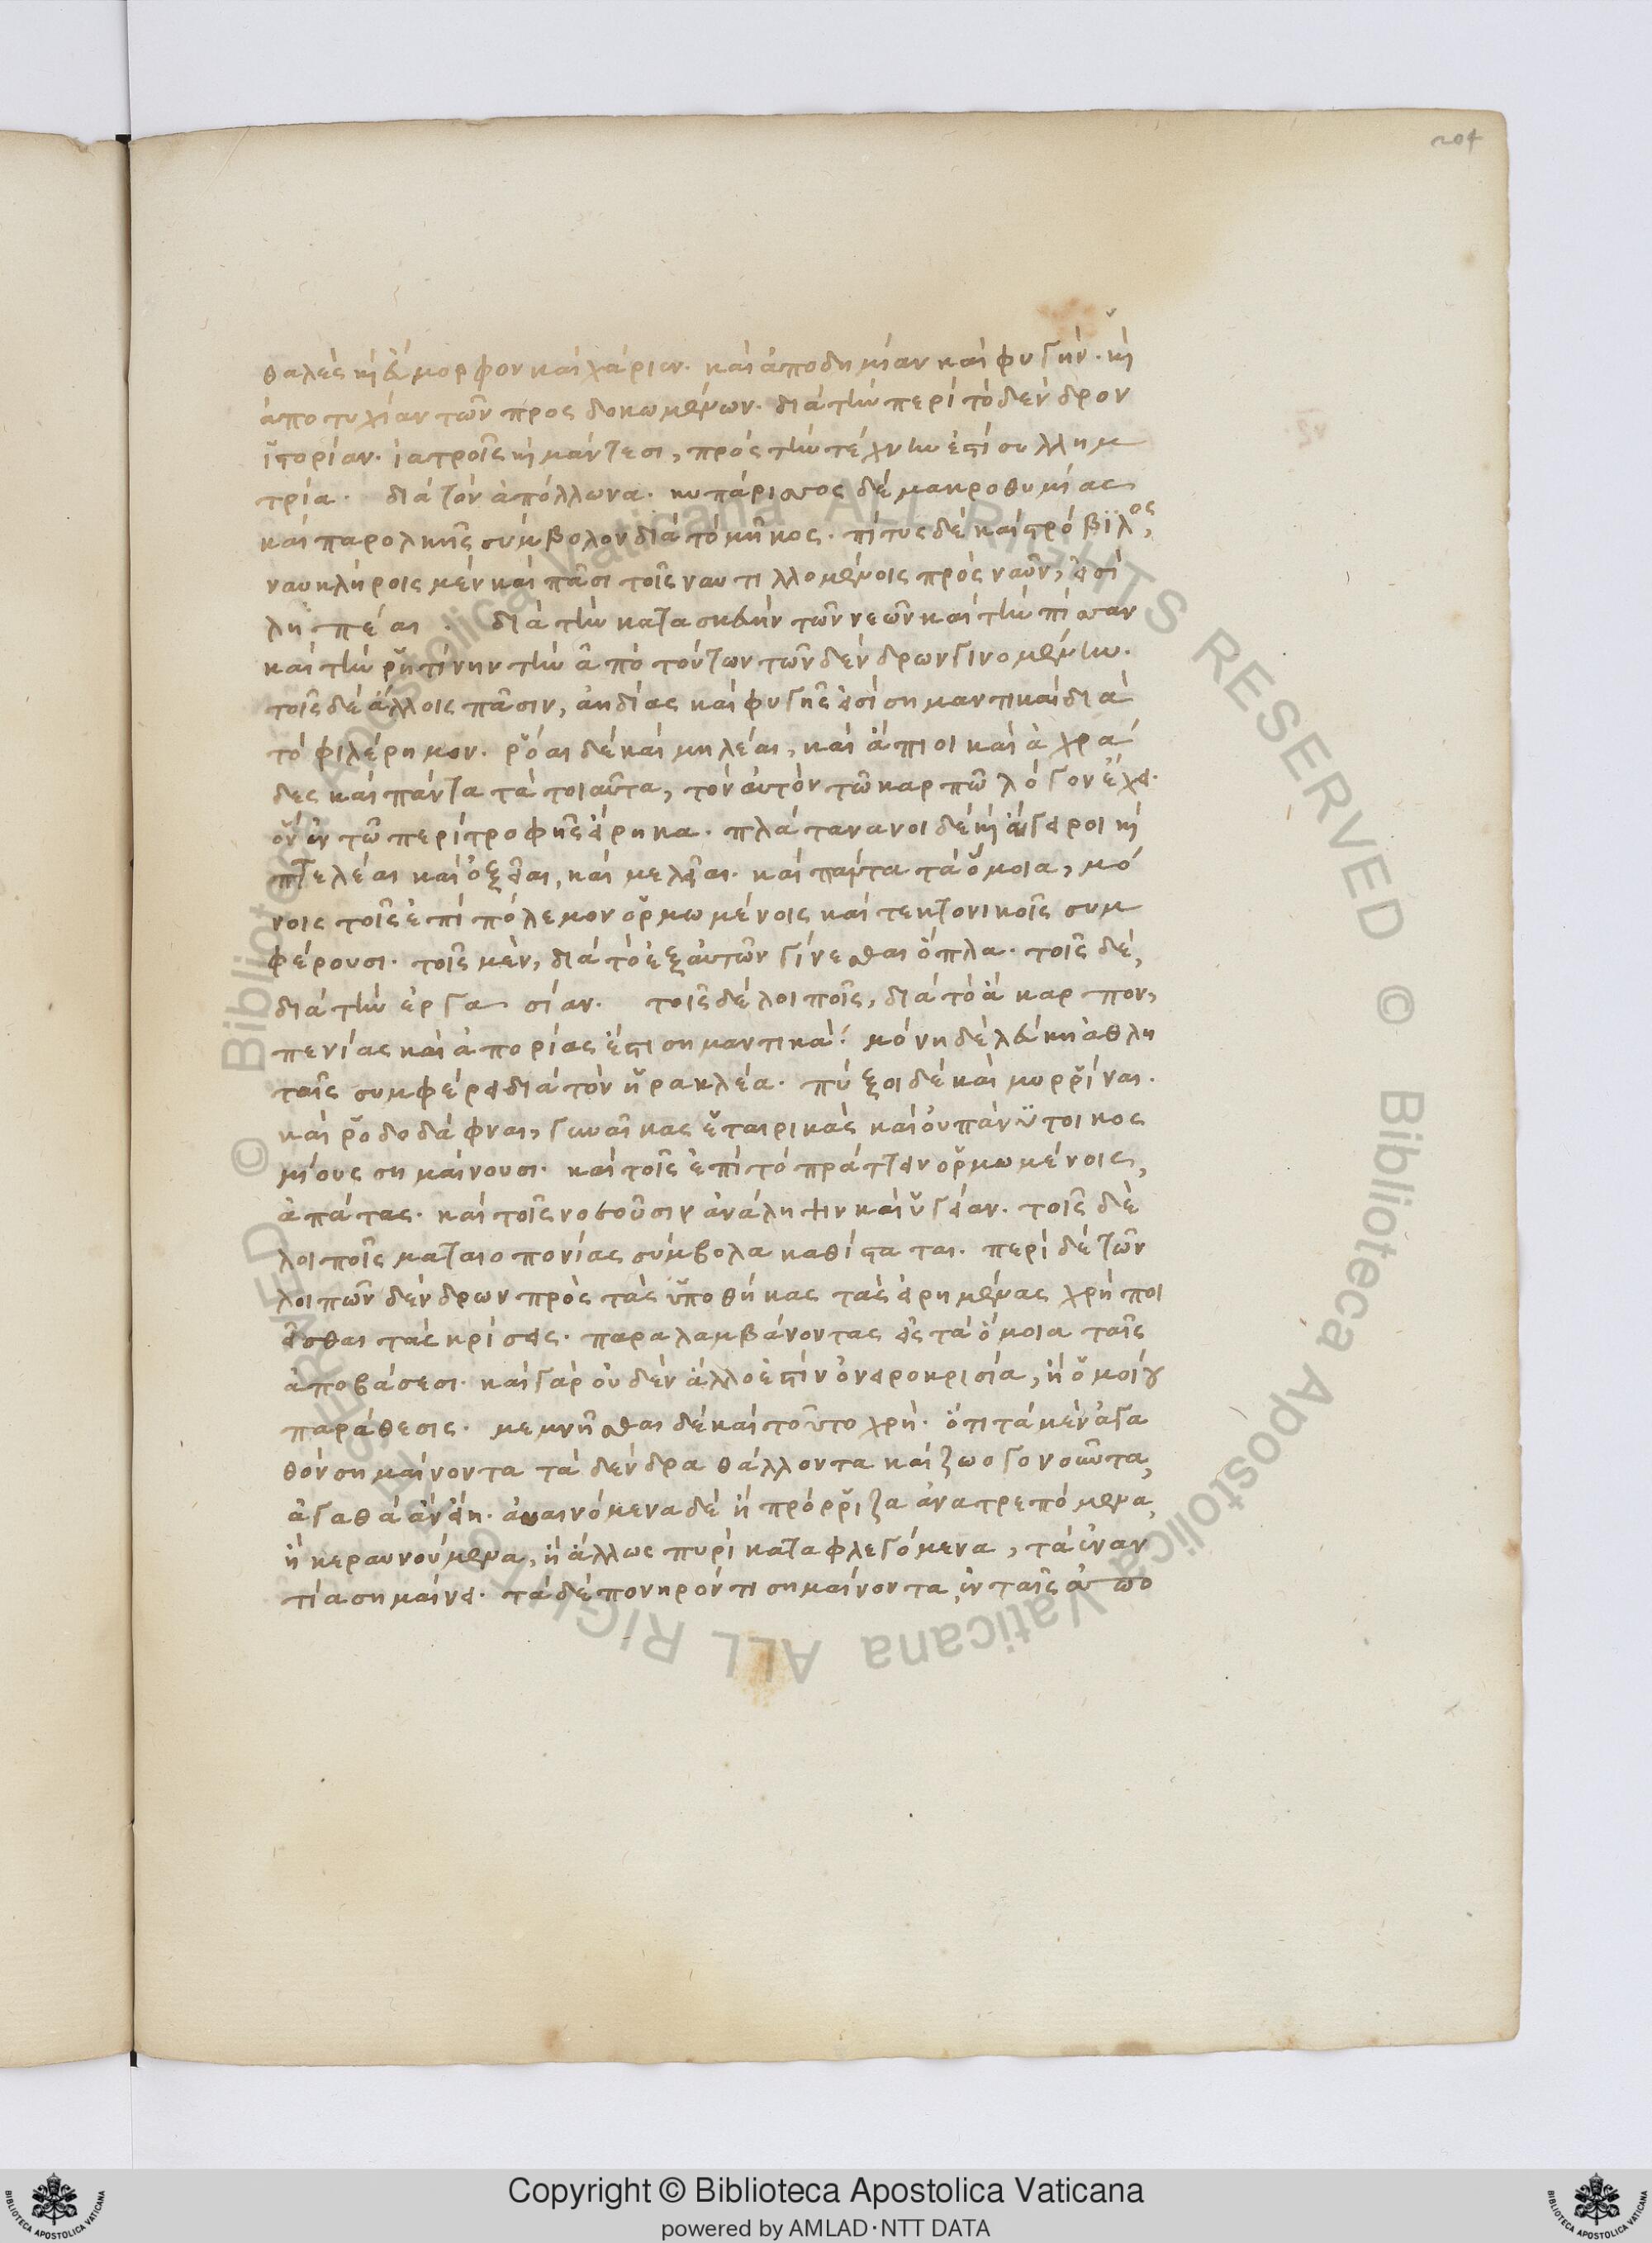 204
θαλὲς καὶ εὔμορφον καὶ χάριεν. καὶ ἀποδημίαν καὶ φυγήν. καὶ
ἀποτυχίαν τῶν προσδοκωμένων. διὰ τὴν περὶ τὸ δένδρον
ἱστορίαν. ἰατροῖς καὶ μάντεσι, πρὸς τὴν τέχνην ἐστὶ συλλημ
τρία. διὰ τὸν ἀπόλλωνα. κυπάρισσος δὲ μακροθυμίας
καὶ παρολκῆς σύμβολον διὰ τὸ μῆκος. πίτυς δὲ καὶ στρόβιλος,
ναυκλήροις μὲν καὶ πᾶσι τοῖς ναυτιλλομένοις πρὸς ναῦν, εἰσὶ
ληπτέαι. διὰ τὴν κατασκευὴν τῶν νεῶν καὶ τὴν πίσσαν
καὶ τὴν ῥητίνην τὴν ἀπὸ τούτων τῶν δένδρων γινομένην.
τοῖς δὲ ἄλλοις πᾶσιν, ἀηδίας καὶ φυγῆς εἰσὶ σημαντικαὶ διὰ
τὸ φιλέρημον. ῥόαι δὲ καὶ μηλέαι, καὶ ἄπιοι καὶ ἀχρά
δες καὶ πάντα τὰ τοιαῦτα, τὸν αὐτὸν τῶ καρπῶ λόγον ἔχει.
ὃν ἐν τῶ περὶ τροφῆς εἴρηκα. πλάτανανοι δὲ καὶ αἴγειροι καὶ
πτελέαι καὶ ὀξεῖαι, καὶ μελεῖαι. καὶ πάντα τὰ ὅμοια, μό
νοις τοῖς ἐπὶ πόλεμον ὁρμωμένοις καὶ τεκτονικοῖς συμ
φέρουσι. τοῖς μὲν, διὰ τὸ ἐξ αὐτῶν γίνεσθαι ὅπλα. τοῖς δὲ,
διὰ τὴν ἐργασίαν. τοῖς δὲ λοιποῖς, διὰ τὸ ἄκαρπον,
πενίας καὶ ἀπορίας ἐστι σημαντικά. μόνη δὲ λεύκη ἀθλη
ταῖς συμφέρει διὰ τὸν ἡρακλέα. πύξοι δὲ καὶ μυρρίναι.
καὶ ῥοδοδάφναι, γυναῖκας ἑταιρικὰς καὶ οὐ πάνυ τοι κοσ
μίους σημαίνουσι. καὶ τοῖς ἐπὶ τὸ πράττειν ὁρμωμένοις,
ἀπάτας. καὶ τοῖς νοσοῦσιν ἀνάληψιν καὶ ὑγείαν. τοῖς δὲ
λοιποῖς ματαιοπονίας σύμβολα καθίσταται. περὶ δὲ τῶν
λοιπῶν δένδρων πρὸς τὰς ὑποθήκας τὰς εἰρημένας χρὴ ποι
εῖσθαι τὰς κρίσεις. παραλαμβάνοντας εἰς τὰ ὅμοια ταῖς
ἀποβάσεσι. καὶ γὰρ οὐδὲν ἄλλο ἐστὶν ὀνειροκρισία, ἢ ὁμοίου
παράθεσις. μεμνῆσθαι δὲ καὶ τοῦτο χρή. ὅτι τὰ μὲν ἀγα
θὸν σημαίνοντα τὰ δένδρα θάλλοντα καὶ ζωογονοῦντα,
ἀγαθὰ ἂν εἴη. αὐαινόμενα δὲ ἢ πρόρριζα ἀνατρεπόμενα,
ἢ κεραυνούμενα, ἢ ἄλλως πυρὶ καταφλεγόμενα, τὰ ἐναν
τία σημαίνει. τὰ δὲ πονηρόν τι σημαίνοντα ἐν ταῖς ἀπο
Copyright © Biblioteca Apostolica Vaticana
powered by AMLAD·NTT DATA